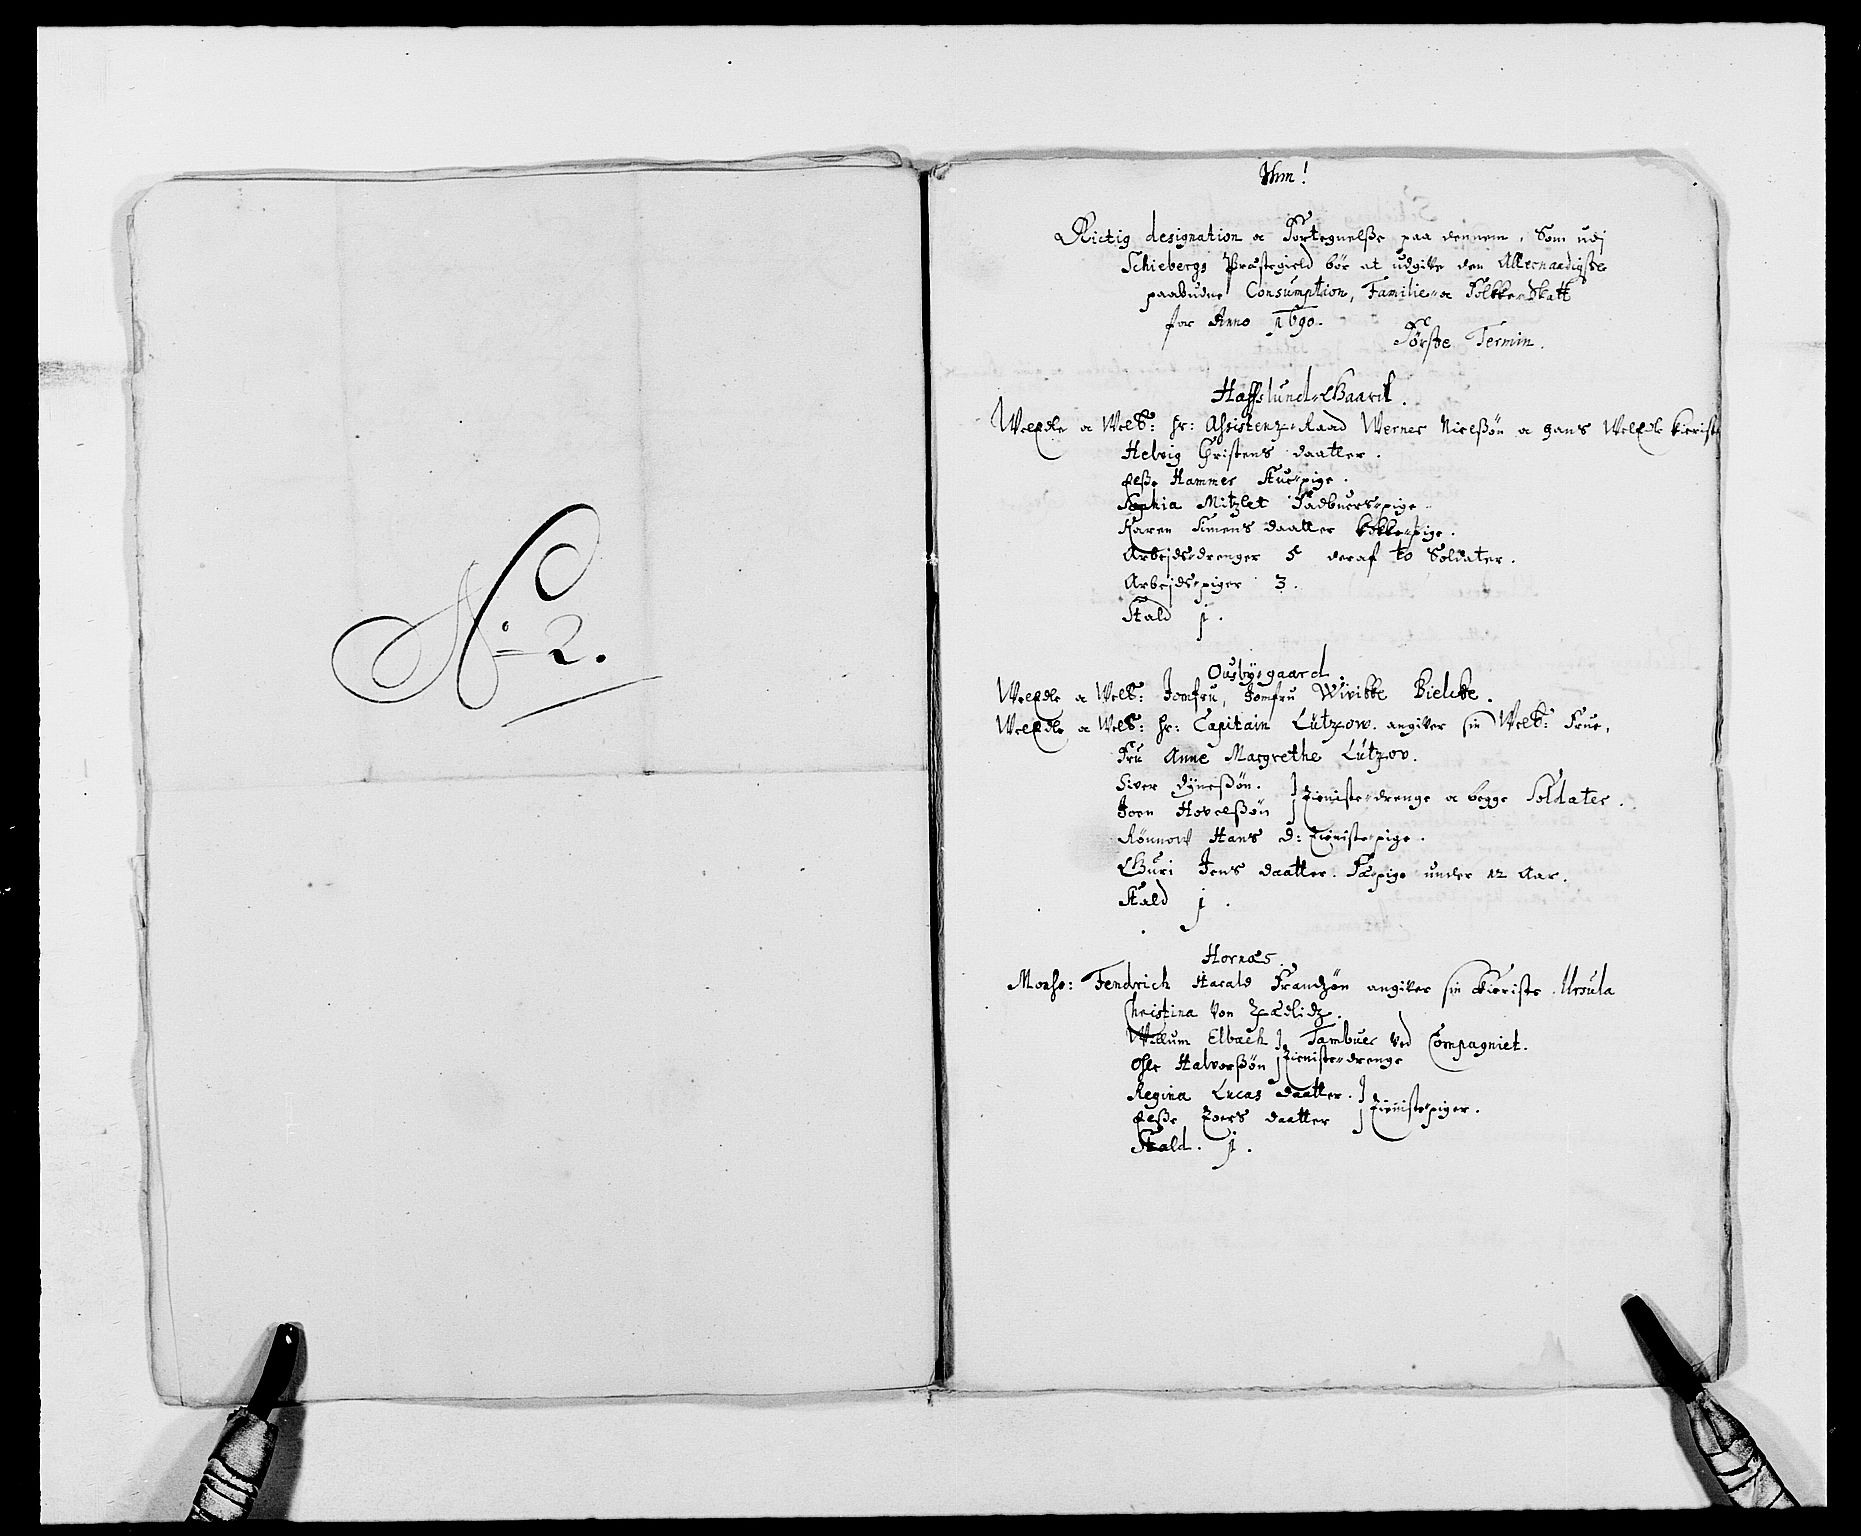 No 2.
Rictig designation oc Fortegnelße paa dennem, Som udj
Schiebergs Præstegield bør at udgifve den Allernaadigste
paabudne Consumption, Familie- oc Folkke-Skatt
for Anno 1690.
Første Termin.
Hafslund-Gaard.
WelEdle oc Welb: Hr: Assistenz-Raad Werner Nielßøn oc hans WelEdle Kieriste
Helvig Christens daatter.
Elße Hammer Stue-pige.
Sophia Mitzlet Fadbuers-pige.
Karen Simens daatter Kokke-pige.
Arbejds-drenger 5 deraf to Soldater.
Arbejds-piger 3.
Stald 1.
Ousbygaard.
WelEdle oc Welb: Jomfru, Jomfru Wivikke Bielcke.
WelEdle oc Welb: Hr: Capitain Lützow. angifver sin Welb: Frue,
Fru Anne Margrethe Lützov.
Siver Dyneßøn.
Joen Hovelßøn } Tieniste-drenge oc begge Soldater.
Rønnow Hans d: Tieniste-pige.
Guri Jens daatter. Fæ-pige under 12 Aar.
Stald 1.
Hornæs.
Monsr: Fendrich Harald Frandzøn angifver sin Kieriste. Ursula
Christina von Zedlidz.
Willum Elbach } Tambuer ved Compagniet.
Ohle Halvorßøn } Tieniste-drenge
Regina Lucas daatter. }
Elße Toers daatter } Tieniste-piger.
Stald. 1.